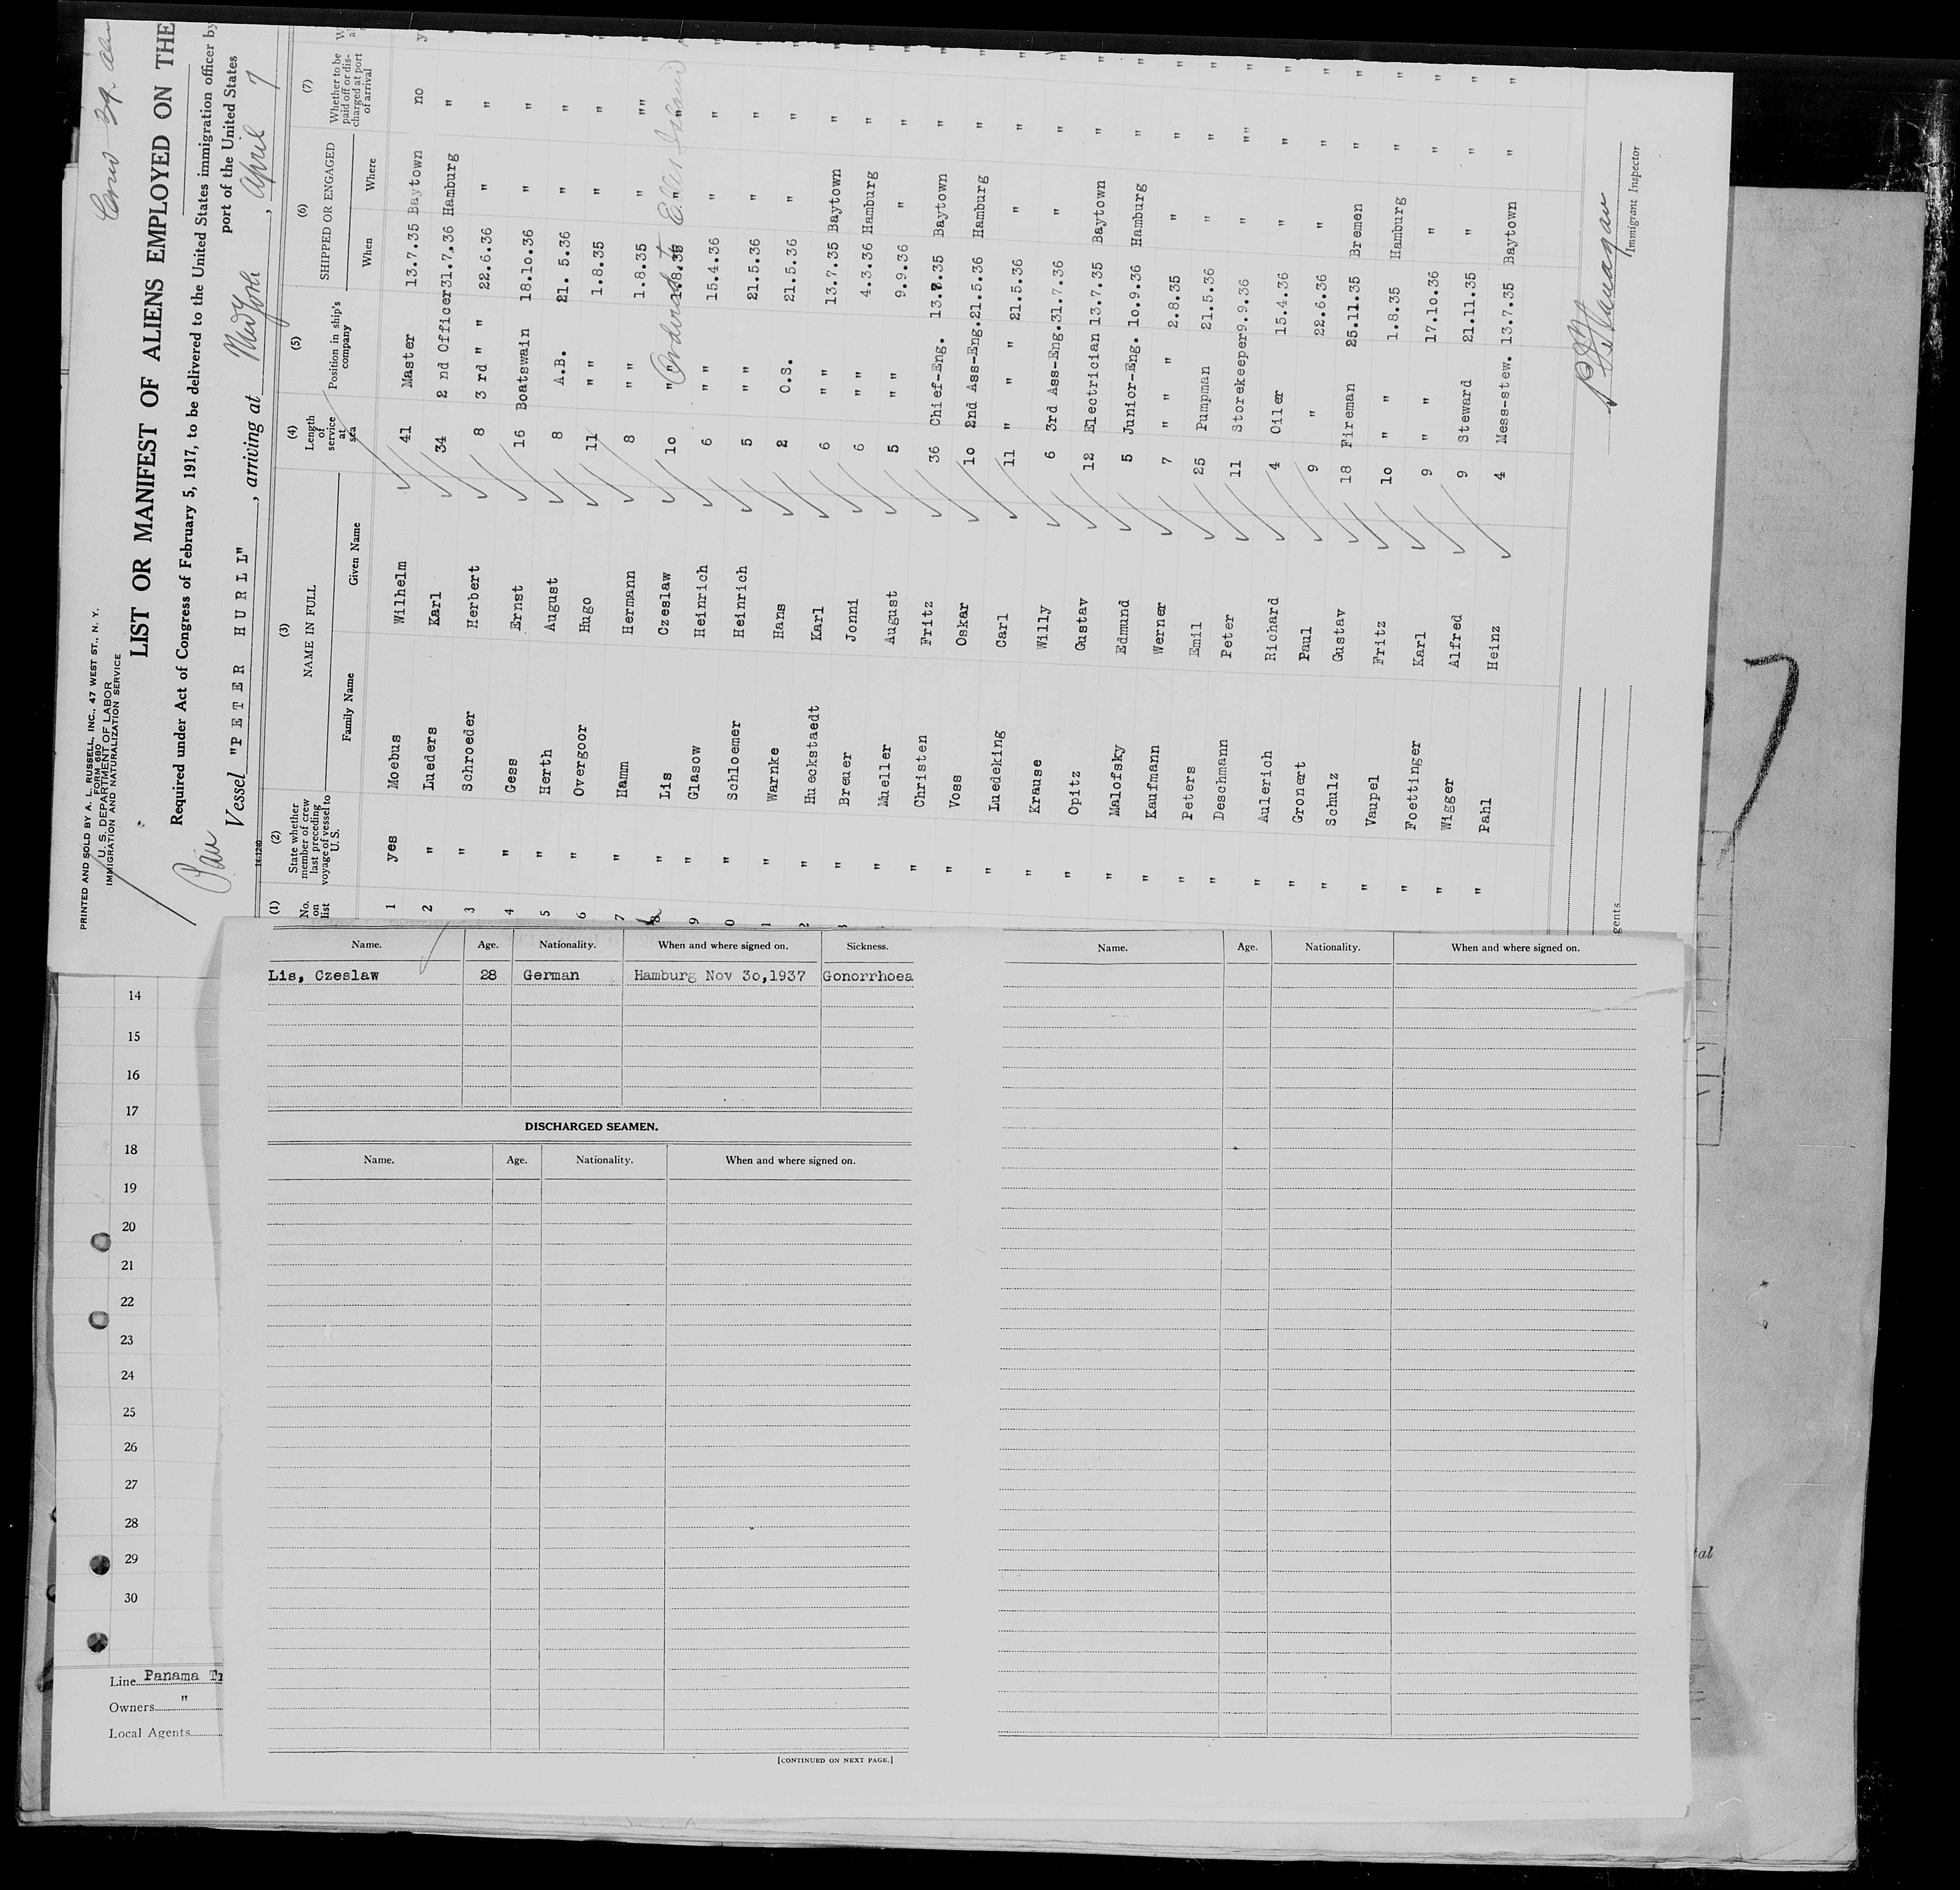 PRINTED AND SOLD BY A. L. RUSSELL, INC., 47 WEST ST., N. Y.
FORM 680
U. S. DEPARTMENT OF LABOR
IMMIGRATION AND NATURALIZATION SERVICE
LIST OR MANIFEST OF ALIENS EMPLOYED ON THE
Required under Act of Congress of February 5, 1917, to be delivered to the United States immigration officer by
port of the United States
Vessel "PETER HURLL", arriving at New York, April 7
14-1240
(1) (2) (3) (4) (5) (6) (7)
No. on list
State whether member of crew last preceding voyage of vessel to U. S.
NAME IN FULL
Family Name Given Name
Length of service at sea
Position in ship's company
SHIPPED OR ENGAGED
When Where
Whether to be paid off or discharged at port of arrival
1 yes Moebus Wilhelm 41 Master 13.7.35 Baytown no
2 " Lueders Karl 34 2 nd Officer 31.7.36 Hamburg "
3 " Schroeder Herbert 8 3 rd " " 22.6.36 " "
4 " Gess Ernst 16 Boatswain 18.10.36 " "
5 " Herth August 8 A.B. 21. 5.36 " "
6 " Overgoor Hugo 11 " " 1.8.35 " "
7 " Hamm Hermann 8 " " 1.8.35 " ""
8 " Lis Czeslaw 10 " " 1.8.35 " "
Ordered to Ellis Island
9 " Glasow Heinrich 6 " " 15.4.36 " "
0 " Schloemer Heinrich 5 " " 21.5.36 " "
1 " Warnke Hans 2 O.S. 21.5.36 " "
2 " Hueckstaedt Karl 6 " " 13.7.35 Baytown "
3 " Breuer Jonni 6 " " 4.3.36 Hamburg "
" Mueller August 5 " " 9.9.36 " "
" Christen Fritz 36 Chief-Eng. 13.7.35 Baytown "
" Voss Oskar 10 2nd Ass-Eng. 21.5.36 Hamburg "
" Luedeking Carl 11 " " " 21.5.36 " "
" Krause Willy 6 3rd Ass-Eng. 31.7.36 " "
" Opitz Gustav 12 Electrician 13.7.35 Baytown "
" Malofsky Edmund 5 Junior-Eng. 10.9.36 Hamburg "
" Kaufmann Werner 7 " " " 2.8.35 " "
" Peters Emil 25 Pumpman 21.5.36 " "
" Deschmann Peter 11 Storekeeper 9.9.36 " ""
" Aulerich Richard 4 Oiler 15.4.36 " "
" Gronert Paul 9 " 22.6.36 " "
" Schulz Gustav 18 Fireman 25.11.35 Bremen "
" Vaupel Fritz 10 " " 1.8.35 Hamburg "
" Foettinger Karl 9 " " 17.10.36 " "
" Wigger Alfred 9 Steward 21.11.35 " "
" Pahl Heinz 4 Mess-stew. 13.7.35 Baytown "
Immigrant Inspector
gents
Name. Age. Nationality. When and where signed on. Sickness.
Lis, Czeslaw 28 German Hamburg Nov 30,1937 Gonorrhoea
DISCHARGED SEAMEN.
Name. Age. Nationality. When and where signed on.
[CONTINUED ON NEXT PAGE.]
Name. Age. Nationality. When and where signed on.
14
15
16
17
18
19
20
21
22
23
24
25
26
27
28
29
30
Line Panama Tr
Owners "
Local Agents
tal
7